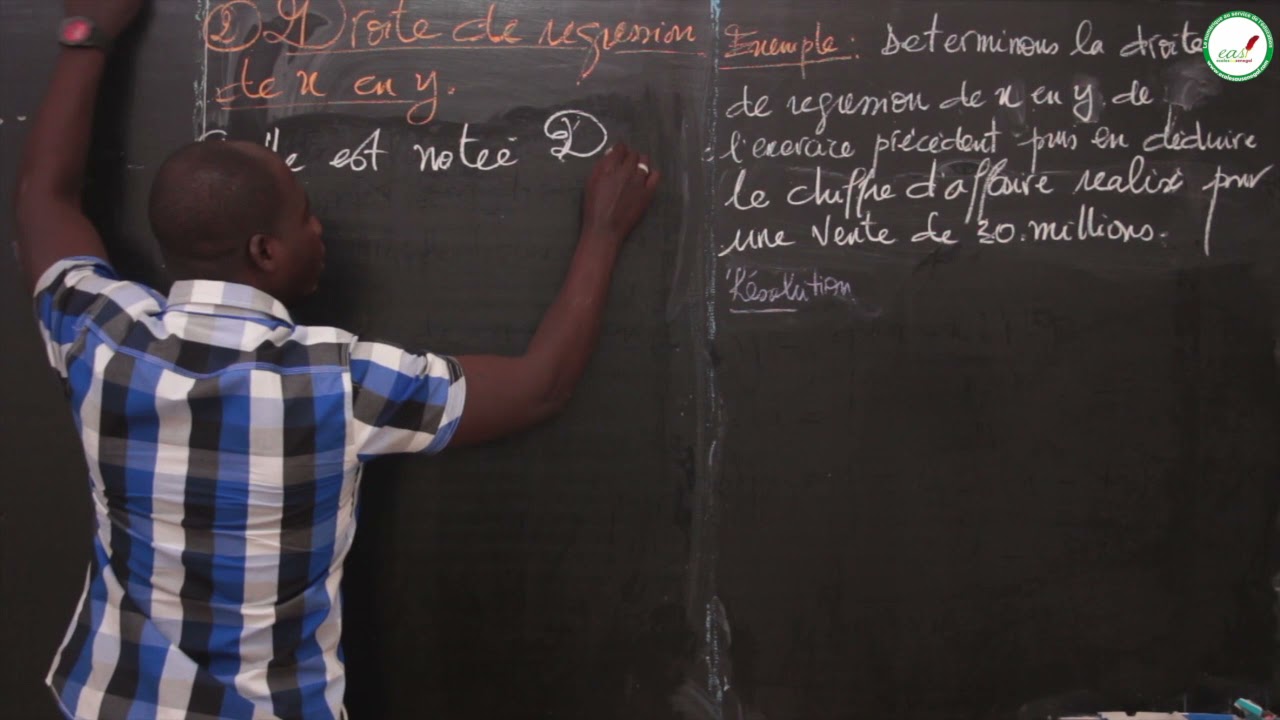 ② Droite de regression
de x en y.
est notée D
Exemple: Determinons la droite
de regression de x en y de
l'exercice précédent puis en déduire
le chiffre d'affaire realisé pour
une vente de 20 millions.
Résolution
easi
ecolesausenegal
www.ecolesausenegal.com